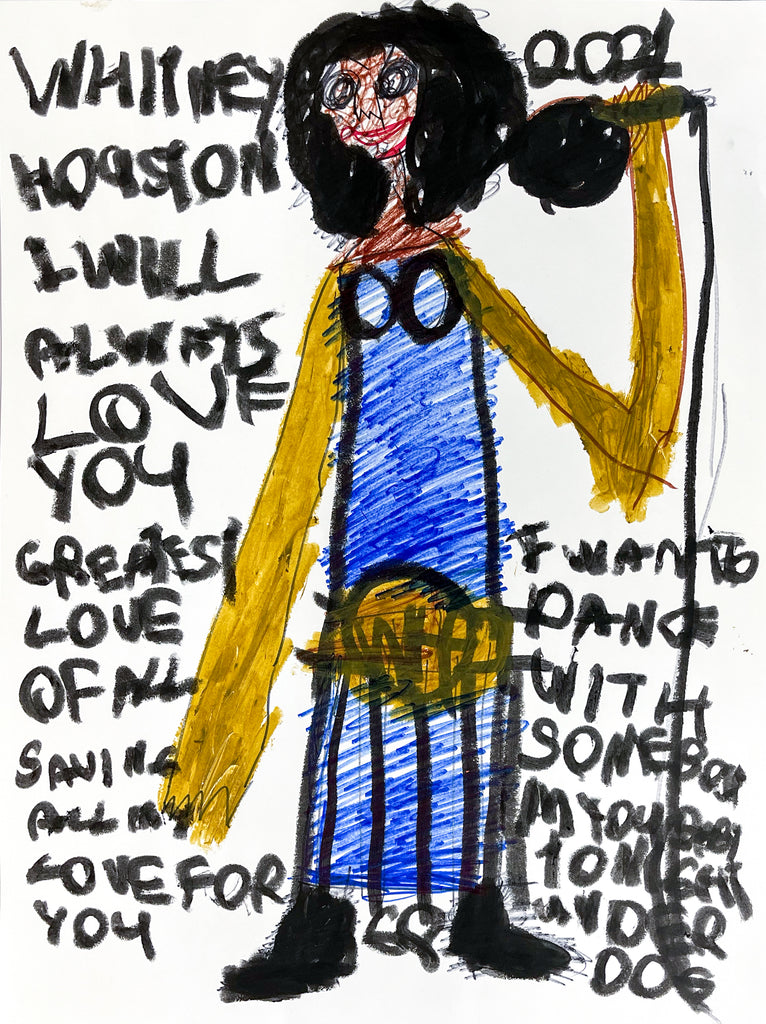 WHITNEY
HOUSTON
I WILL
ALWAYS
LOVE
YOU
GREATEST
LOVE
OF ALL
SAVING
ALL MY
LOVE FOR
YOU
2021
I WANT TO
DANCE
WITH
SOMEBODY
M YOUR BABY
TONIGHT
UNDER
DOG